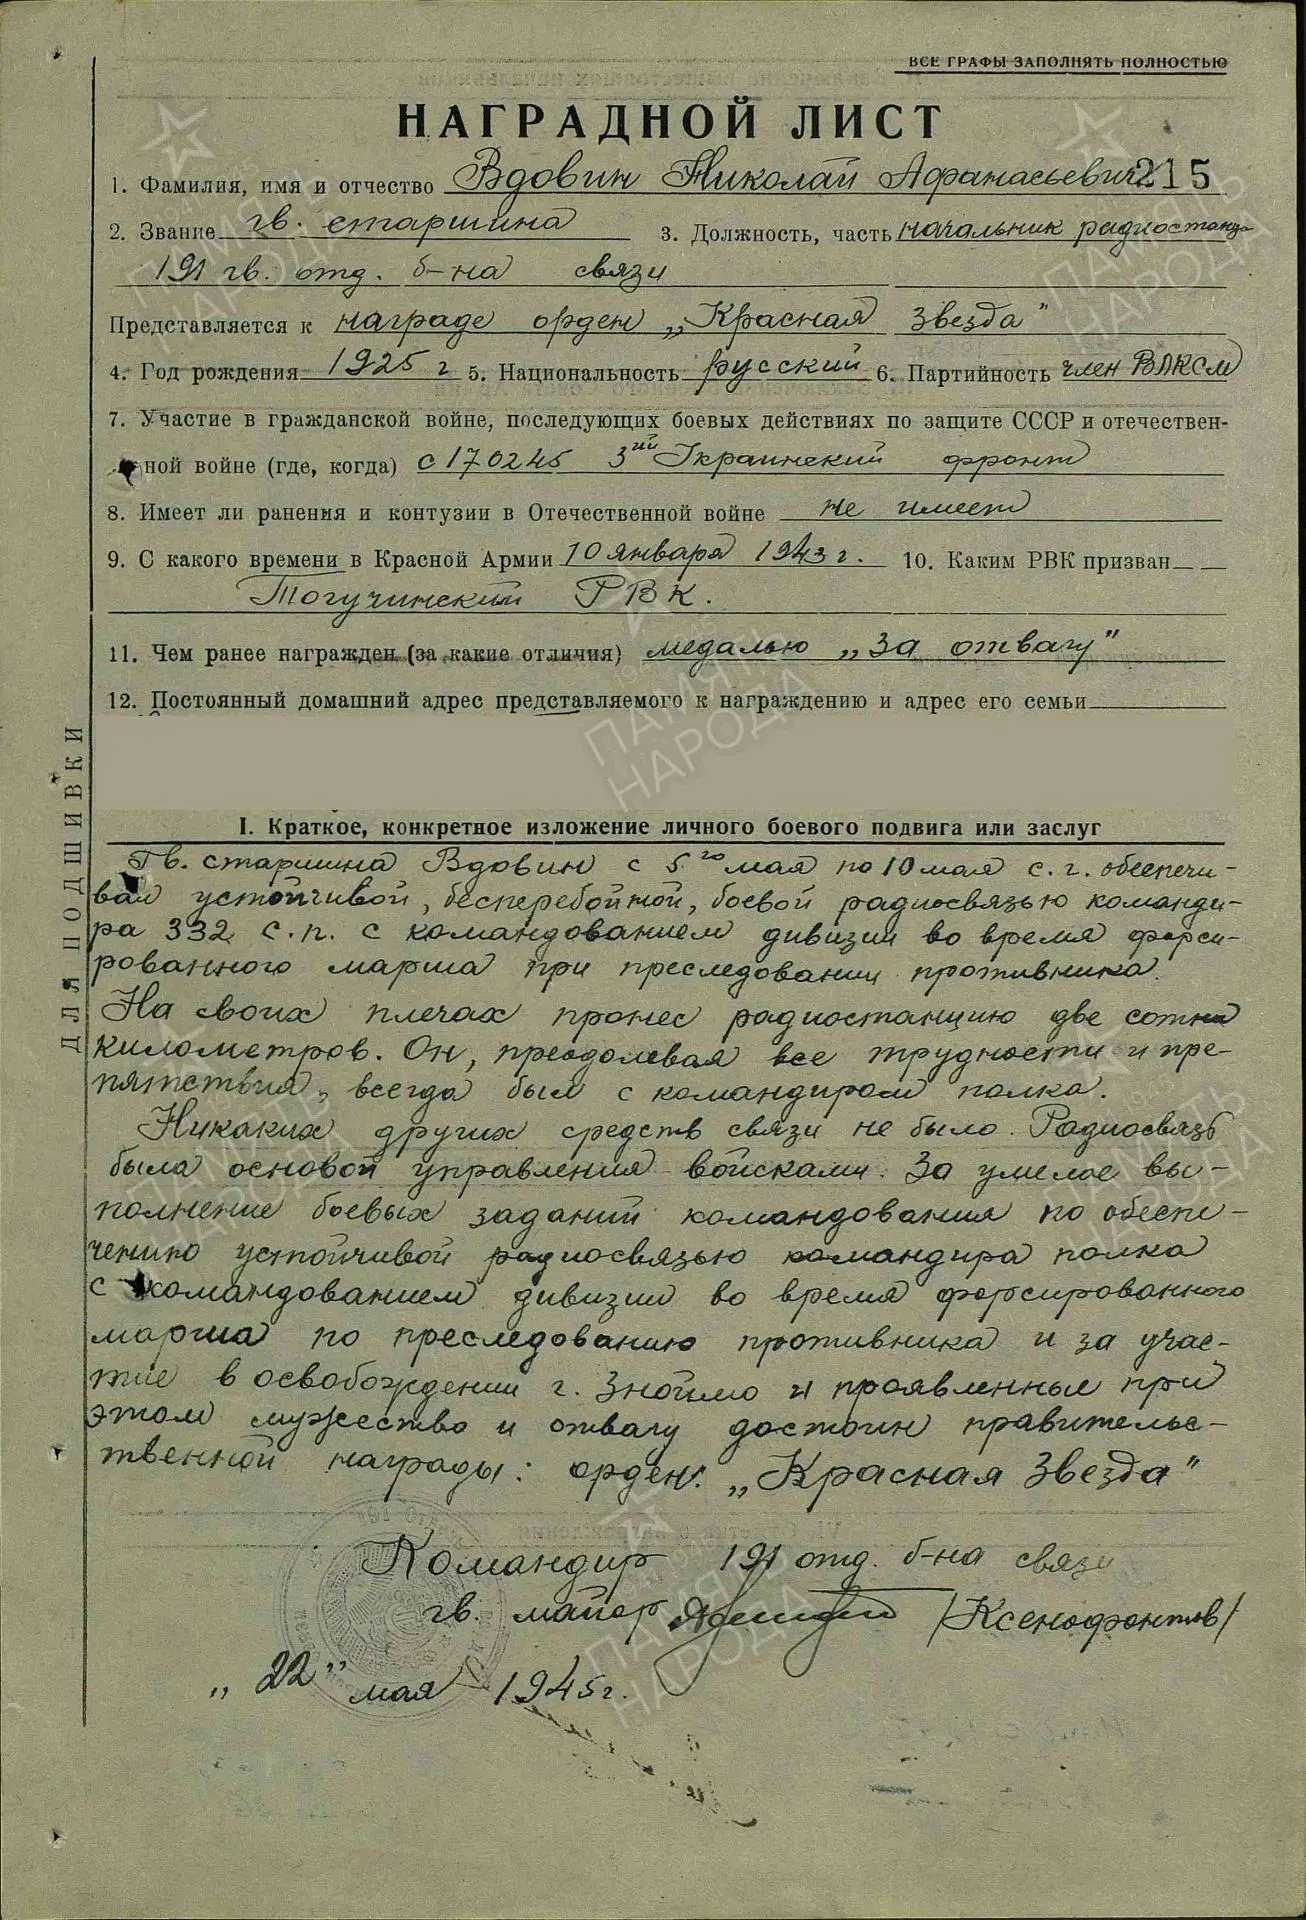 ВСЕ ГРАФЫ ЗАПОЛНЯТЬ ПОЛНОСТЬЮ
НАГРАДНОЙ ЛИСТ
1. Фамилия, имя и отчество Вдовин Николай Афанасьевич 215
2. Звание гв. старшина 3. Должность, часть начальник радиостанци
191 гв. отд. б-на связи
Представляется к награде орден „Красная Звезда"
4. Год рождения 1925 г 5. Национальность русский 6. Партийность член ВЛКСМ
7. Участие в гражданской войне, последующих боевых действиях по защите СССР и отечествен-
ной войне (где, когда) с 170245 3ий Украинский фронт
8. Имеет ли ранения и контузии в Отечественной войне не имеет
9. С какого времени в Красной Армии 10 января 1943 г. 10. Каким РВК призван
Тогучинский РВК.
11. Чем ранее награжден (за какие отличия) медалью „За отвагу"
12. Постоянный домашний адрес представляемого к награждению и адрес его семьи
ДЛЯ ПОДШИВКИ
I. Краткое, конкретное изложение личного боевого подвига или заслуг
Гв. старшина Вдовин с 5го мая по 10 мая с. г. обеспечи-
вал устойчивой, бесперебойной, боевой радиосвязью команди-
ра 332 с.п. с командованием дивизии во время форси-
рованного марша при преследовании противника.
На своих плечах пронес радиостанцию две сотни
километров. Он, преодолевая все трудности и пре-
пятствия, всегда был с командиром полка.
Никаких других средств связи не было. Радиосвязь
была основой управления войсками. За умелое вы-
полнение боевых заданий командования по обеспе-
чению устойчивой радиосвязью командира полка
с командованием дивизии во время форсированного
марша по преследованию противника и за учас-
тие в освобождении г. Зноймо и проявленные при
этом мужество и отвагу достоин правительс-
твенной награды: орден: „Красная Звезда"
Командир 191 отд. б-на связи
гв. майор /Ксенофонтов/
„22" мая 1945 г.
ПАМЯТЬ НАРОДА